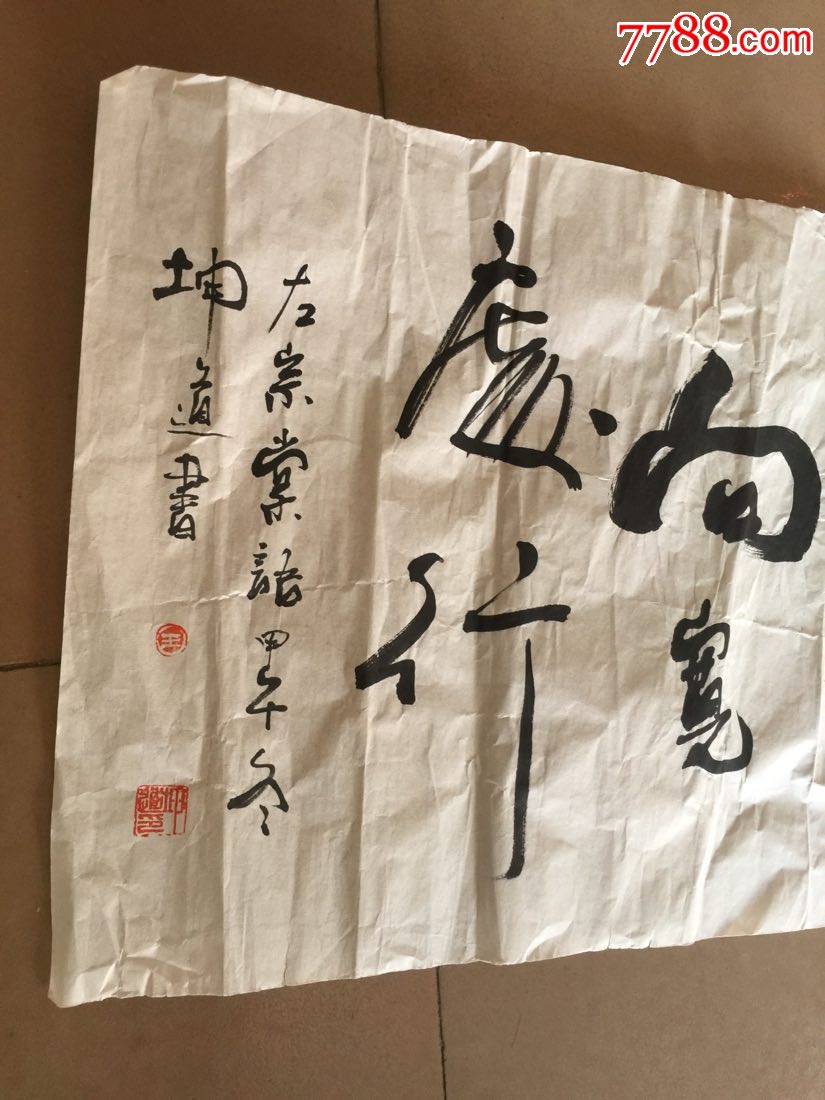 7788.com
向寬
處行
左宗棠語甲午冬
坤道書
王